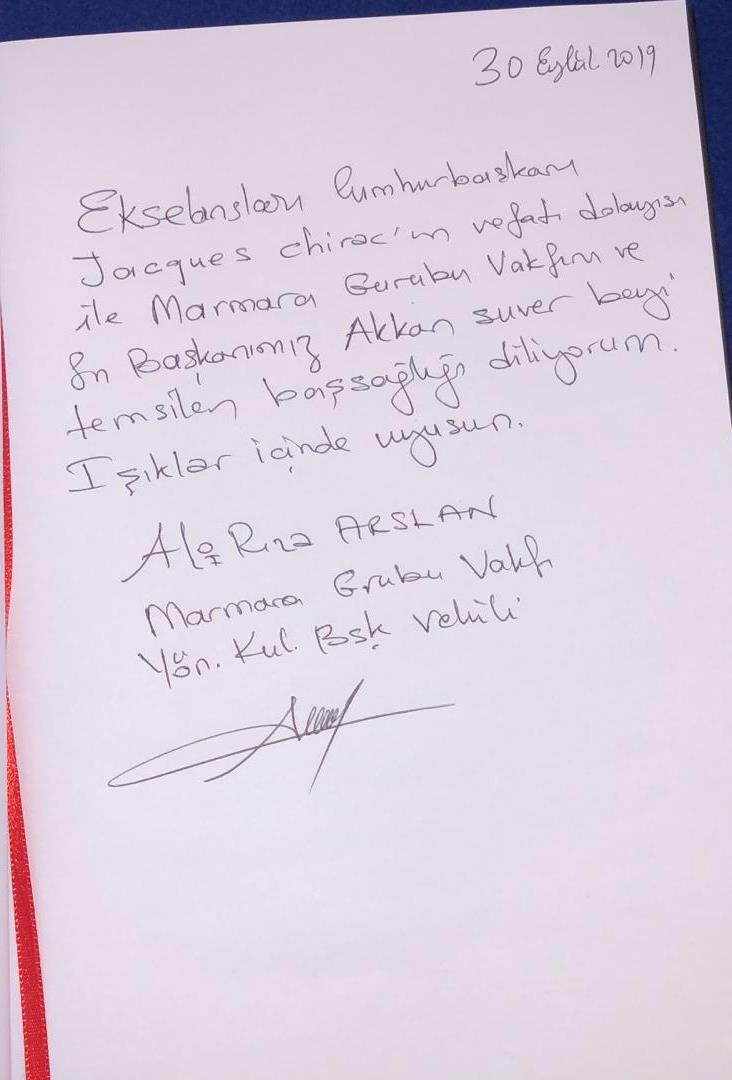 30 Eylül 2019
Ekselansları Cumhurbaşkanı
Jacques chirac'ın vefatı dolayısı
ile Marmara Gurubu Vakfını ve
Başkanımız Akkan suver beyi
temsilen başsağlığı diliyorum.
Işıklar içinde uyusun.
Ali Rıza ARSLAN
Marmara Grubu Vakfı
Yön. Kul. Bşk Vekili